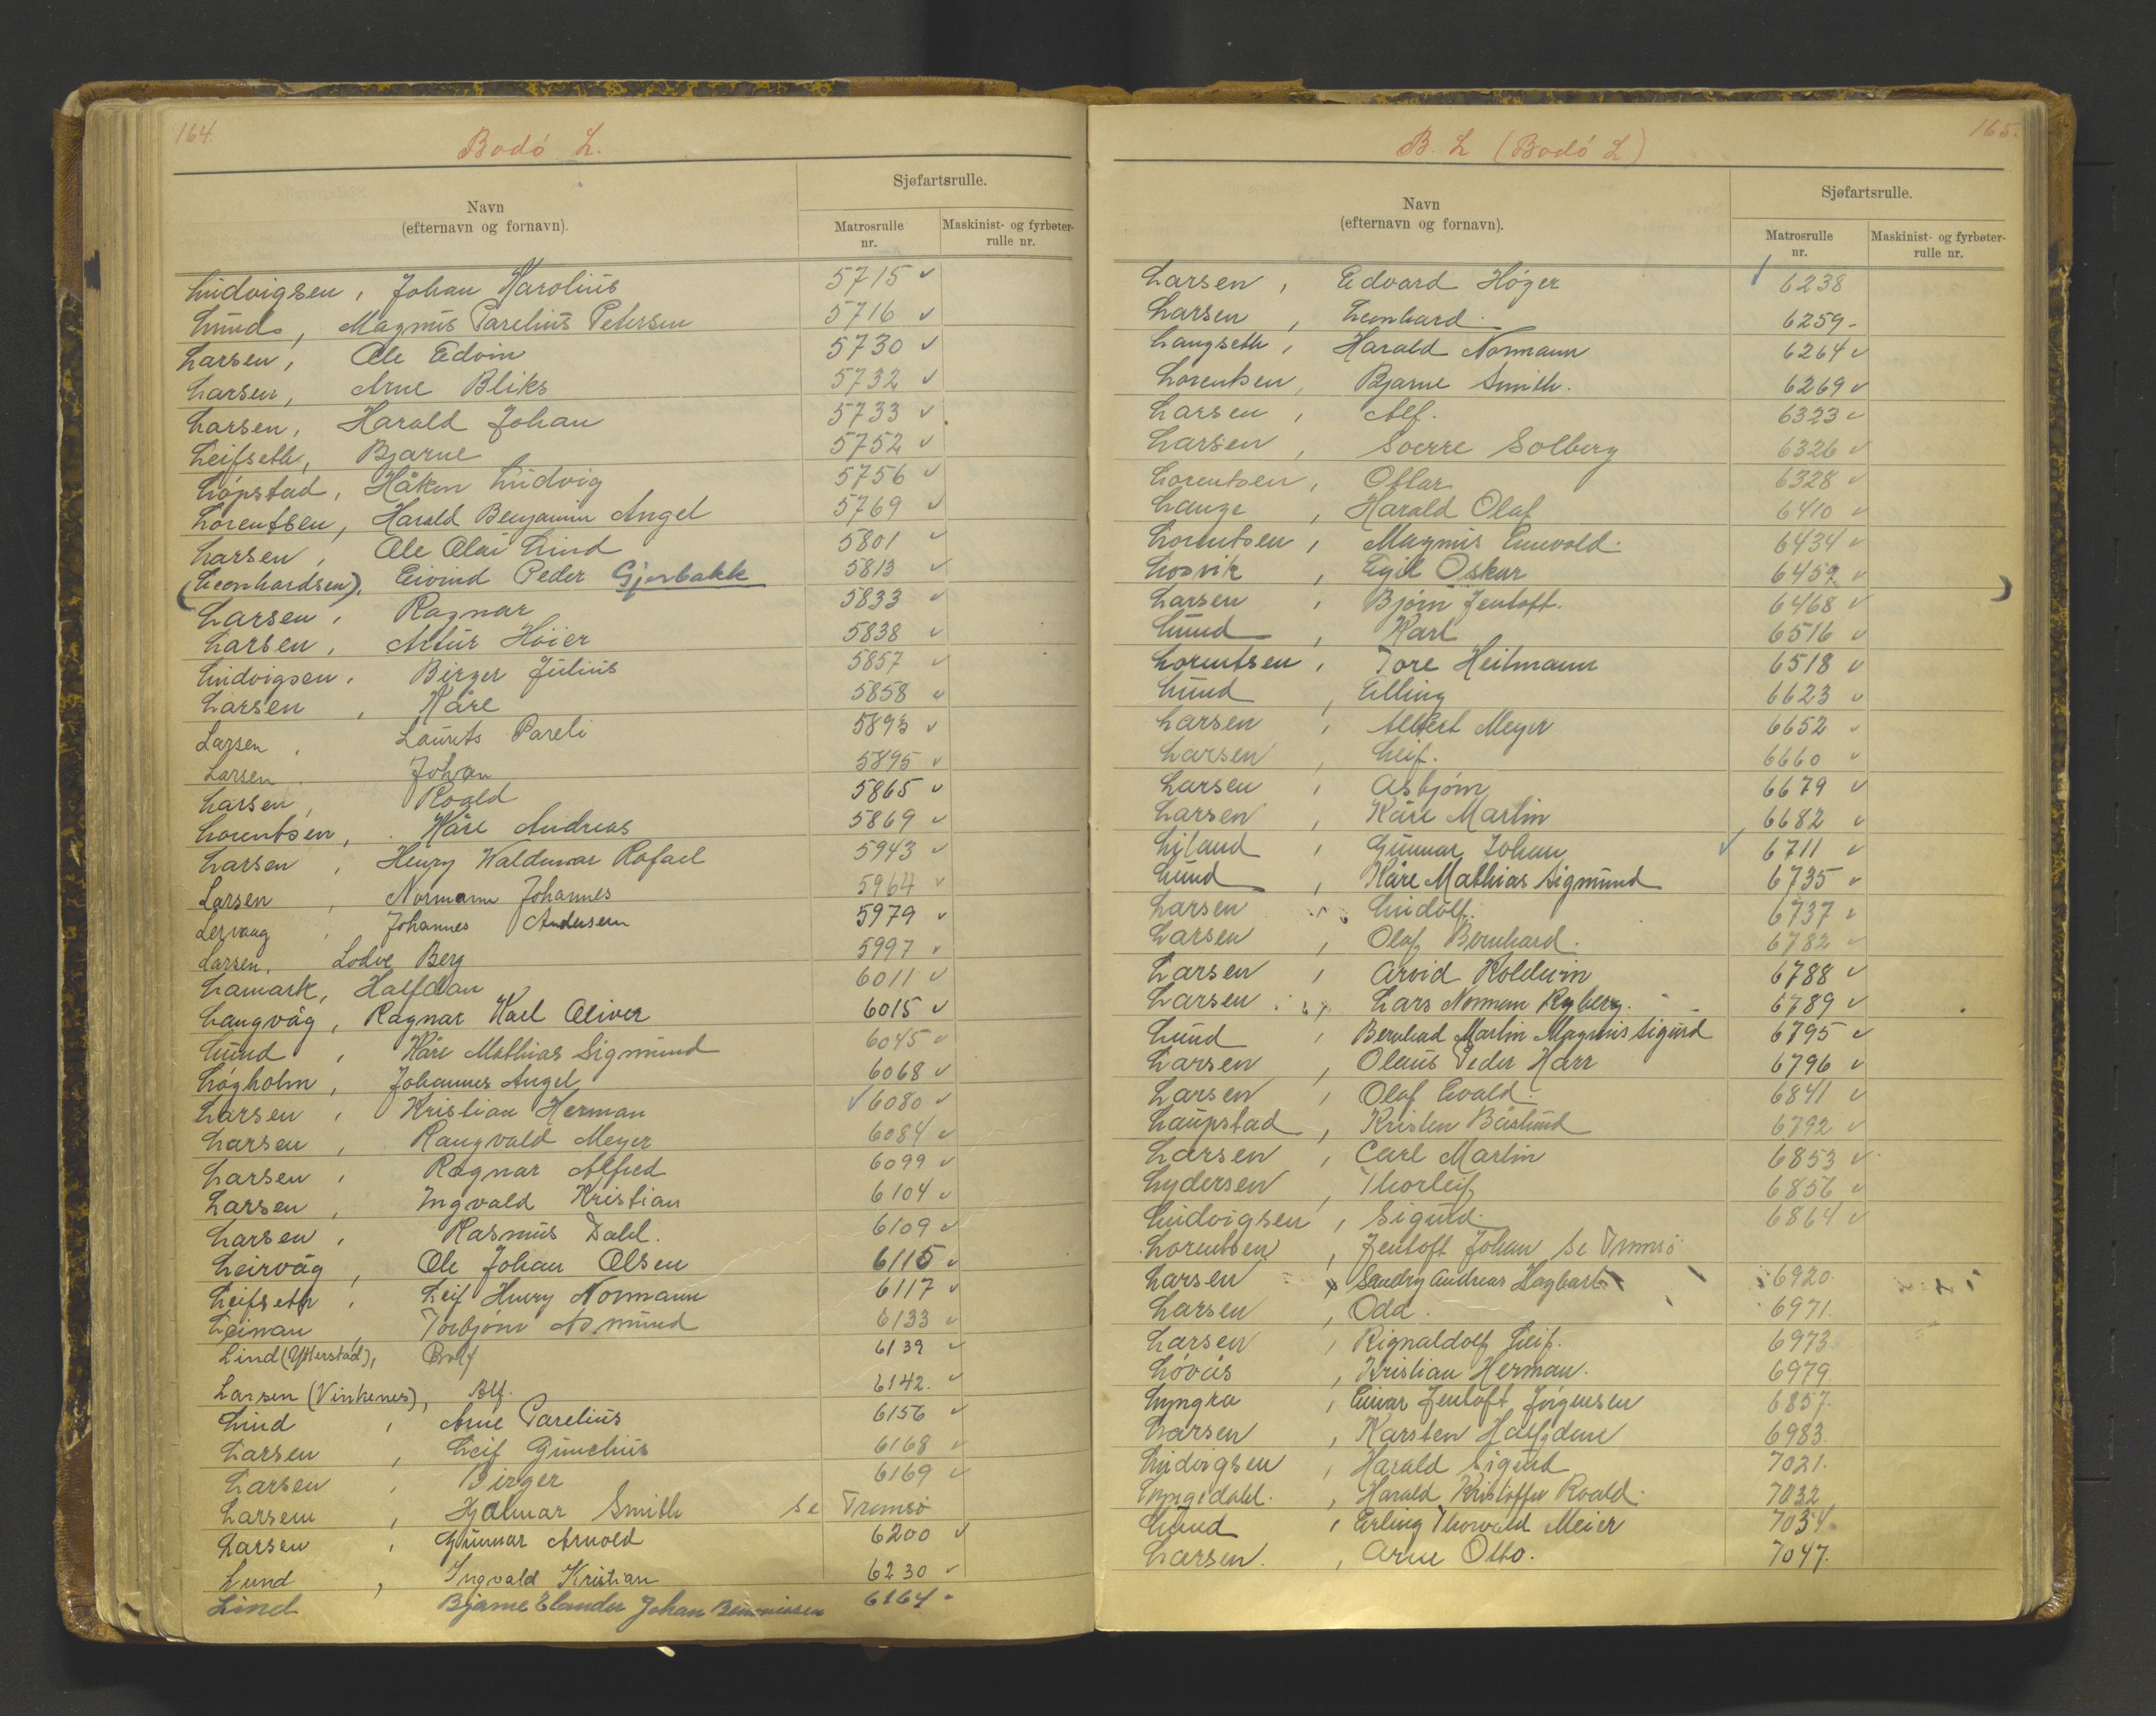 164.
Bodó L.
Navn
(efternavn og fornavn).
Sjøfartsrulle.
Matrosrulle nr.
Maskinist- og fyrbøter-rulle nr.
Ludvigsen, Johan Karolius 5715 ✓
Lund, Magnus Parelius Petersen 5716 ✓
Larsen, Ole Edvin 5730 ✓
Larsen, Arne Bliks 5732 ✓
Larsen, Harald Johan 5733 ✓
Leifseth, Bjarne 5752 ✓
Lópstad, Håkon Ludvig 5756 ✓
Lorentsen, Harald Benjamin Angel 5769 ✓
Larsen, Ole Olai Lind 5801 ✓
(Leonhardsen), Eivind Peder Gjerbakk 5813 ✓
Larsen, Ragnar 5833 ✓
Larsen, Artur Höier 5838 ✓
Ludvigsen, Birger Julius 5857 ✓
Larsen, Kåre 5858 ✓
Larsen, Laurits Pareli 5893 ✓
Larsen, Johan 5895 ✓
Larsen, Roald 5865 ✓
Lorentsen, Kåre Andreas 5869 ✓
Larsen, Henry Waldemar Rafael 5943 ✓
Larsen, Normann Johannes 5964 ✓
Johannes Andersen 5979 ✓
Larsen, Lodve Berg 5997 ✓
Lamark, Halfdan 6011 ✓
Langvåg, Ragnar Karl Oliver 6015 ✓
Lund, Kåre Mathias Sigmund 6045 ✓
Lógholm, Johannes Angel 6068 ✓
Larsen, Kristian Herman ✓ 6080 ✓
Larsen, Rangvald Meyer 6084 ✓
Larsen, Ragnar Alfred 6099 ✓
Larsen, Ingvald Kristian 6104 ✓
Larsen, Rasmus Dahl. 6109 ✓
Leirvåg, Ole Johan Olsen 6115 ✓
Leifseth, Leif Henry Normann 6117 ✓
Leinan, Torbjörn Asmund 6133 ✓
Lind (Ytterstad), Rolf 6139 ✓
Larsen (Vinkenes), Alf. 6142. ✓
Lind, Arne Parelius 6156 ✓
Larsen, Leif Gunelius 6168 ✓
Larsen, Birger 6169 ✓
Larsen, Hjalmar Smith Se Tromsö
Larsen, Gunnar Arnold 6200 ✓
Lund, Ingvald Kristian 6230 ✓
Lind Bjarne Elander Johan 6164
165.
B. L (Bodó L)
Navn
(efternavn og fornavn).
Sjøfartsrulle.
Matrosrulle nr.
Maskinist- og fyrbøter-rulle nr.
Larsen, Edvard Höger ✓ 6238
Larsen, Leonhard 6259
Langseth, Harald Normann 6264 ✓
Lorentsen, Bjarne Smith. 6269 ✓
Larsen, Alf. 6323 ✓
Larsen, Sverre Solberg 6326 ✓
Lorentsen, Ottar 6328 ✓
Lange, Harald Olaf 6410 ✓
Lorentsen, Magnus Enevold 6434 ✓
Losvik, Egil Oskar 6459 ✓
Larsen, Björn Jentoft. 6468 ✓
Lund, Karl 6516 ✓
Lorentsen, Tore Heitmann 6518 ✓
Lund, Elling 6623 ✓
Larsen, Albert Meyer 6652 ✓
Larsen, Leif. 6660 ✓
Larsen, Asbjörn 6679 ✓
Larsen, Kåre Martin 6682 ✓
Liland, Gunnar Johan ✓ 6711 ✓
Lund, Kåre Mathias Sigmund 6735 ✓
Larsen, Ludolf. 6737 ✓
Larsen, Olaf Bernhard. 6782 ✓
Larsen, Arvid Koldevin 6788 ✓
Larsen, Lars Normann Ryberg. 6789 ✓
Lund, Bernhard Martin Magnus Sigurd 6795 ✓
Larsen, Olaus Peder Harr 6796 ✓
Larsen, Olaf Evald 6841 ✓
Laupstad, Kristen Båslund 6792 ✓
Larsen, Carl Martin 6853 ✓
Lydersen, Thorleif 6856 ✓
Ludvigsen, Sigurd 6864 ✓
Lorentsen, Jentoft Johan Se Tromsö
Larsen, Sendry Andreas Hagbart 6920
Larsen, Odd. 6971.
Larsen, Rignaldolf Leif. 6973
Lövås, Kristian Herman. 6979
Lyngra, Einar Jentoft Jörgensen 6857.
Larsen, Karsten Halfdane 6983.
Ludvigsen, Harald Sigurd 7021.
Lyngedahl, Harald Kristoffer Roald. 7032
Lund, Erling Thorvald Meier 7034
Larsen, Arne Otto. 7047.